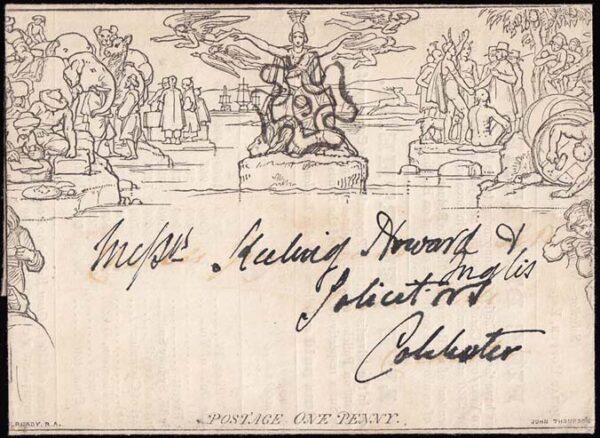 Messrs Keeling Howard &
Inglis
Solicitors
Colchester
POSTAGE ONE PENNY.
MULREADY, R.A.
JOHN THOMPSON